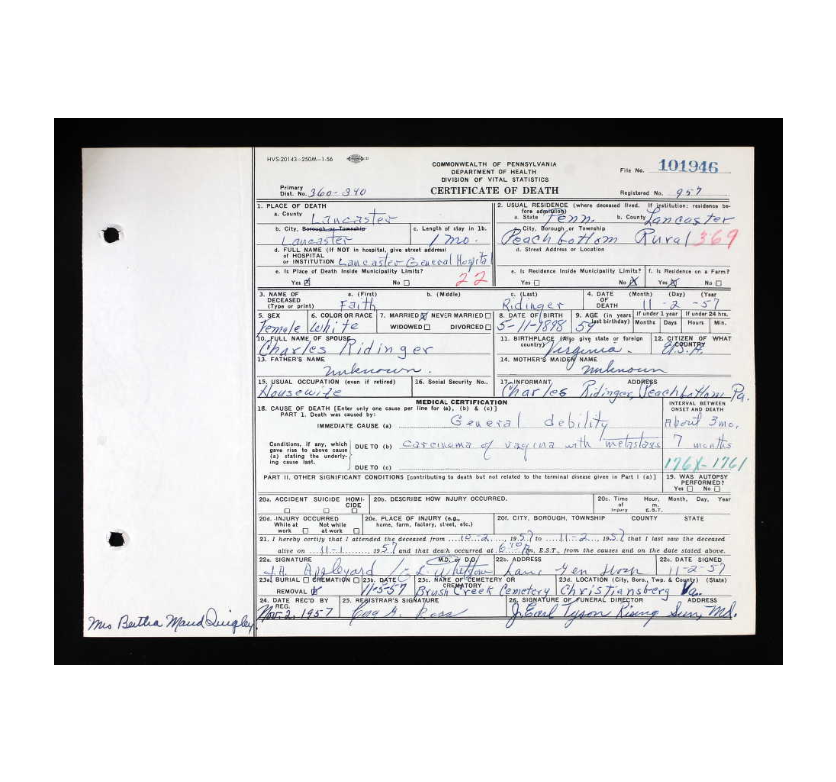 HVS-20143-250M-1-56
COMMONWEALTH OF PENNSYLVANIA
DEPARTMENT OF HEALTH
DIVISION OF VITAL STATISTICS
File No. 101946
Primary Dist. No. 360-340
CERTIFICATE OF DEATH
Registered No. 957
1. PLACE OF DEATH
a. County Lancaster
2. USUAL RESIDENCE (where deceased lived. If institution: residence before admission)
a. State Penn. b. County Lancaster
b. City, Borough or Township Lancaster
c. Length of stay in 1b. 1 mo.
c. City, Borough or Township Peachbottom Rural 369
d. FULL NAME (If NOT in hospital, give street address) OF HOSPITAL OR INSTITUTION Lancaster General Hospital
d. Street Address or Location
e. Is Place of Death Inside Municipality Limits? Yes No 22
e. Is Residence Inside Municipality Limits? Yes No X
f. Is Residence on a Farm? Yes X No
3. NAME OF DECEASED (Type or print) a. (First) Faith b. (Middle) c. (Last) Ridinger
4. DATE OF DEATH (Month) (Day) (Year) 11-2-57
5. SEX Female
6. COLOR OR RACE White
7. MARRIED X NEVER MARRIED WIDOWED DIVORCED
8. DATE OF BIRTH 5-11-1898
9. AGE (in years last birthday) 59 If under 1 year Months Days If under 24 hrs. Hours Min.
10. FULL NAME OF SPOUSE Charles Ridinger
11. BIRTHPLACE (Also give state or foreign country) Virginia.
12. CITIZEN OF WHAT COUNTRY U.S.A.
13. FATHER'S NAME Unknown.
14. MOTHER'S MAIDEN NAME Unknown
15. USUAL OCCUPATION (even if retired) Housewife
16. Social Security No.
17. INFORMANT ADDRESS Charles Ridinger, Peachbottom Pa.
MEDICAL CERTIFICATION
INTERVAL BETWEEN ONSET AND DEATH
18. CAUSE OF DEATH [Enter only one cause per line for (a), (b) & (c)]
PART I. Death was caused by:
IMMEDIATE CAUSE (a) General debility About 3 mo.
Conditions, if any, which gave rise to above cause (a) stating the underlying cause last.
DUE TO (b) Carcinoma of vagina with metastasis 7 months
DUE TO (c) 176X-1761
PART II. OTHER SIGNIFICANT CONDITIONS [contributing to death but not related to the terminal disease given in Part I (a)]
19. WAS AUTOPSY PERFORMED? Yes No
20a. ACCIDENT SUICIDE HOMICIDE
20b. DESCRIBE HOW INJURY OCCURRED.
20c. Time of injury Hour, m. E.S.T. Month, Day, Year
20d. INJURY OCCURRED While at work Not while at work
20e. PLACE OF INJURY (e.g., home, farm, factory, street, etc.)
20f. CITY, BOROUGH, TOWNSHIP COUNTY STATE
21. I hereby certify that I attended the deceased from 10-2, 1957 to 11-2, 1957 that I last saw the deceased
alive on 11-1 1957 and that death occurred at m., E.S.T., from the causes and on the date stated above.
22a. SIGNATURE M.D. or D.O. J.H. Appleyard
22b. ADDRESS Lanc Gen
22c. DATE SIGNED 11-2-57
23a. BURIAL CREMATION REMOVAL
23b. DATE 11-5-57
23c. NAME OF CEMETERY OR CREMATORY Brush Creek Cemetery
23d. LOCATION (City, Boro, Twp. & County) (State) Christiansberg Va.
24. DATE REC'D BY REG. Nov. 2, 1957
25. REGISTRAR'S SIGNATURE Ross
26. SIGNATURE OF FUNERAL DIRECTOR ADDRESS J. Earl Tyson Rising Sun, Md.
Mrs Bertha Maud Quigley.